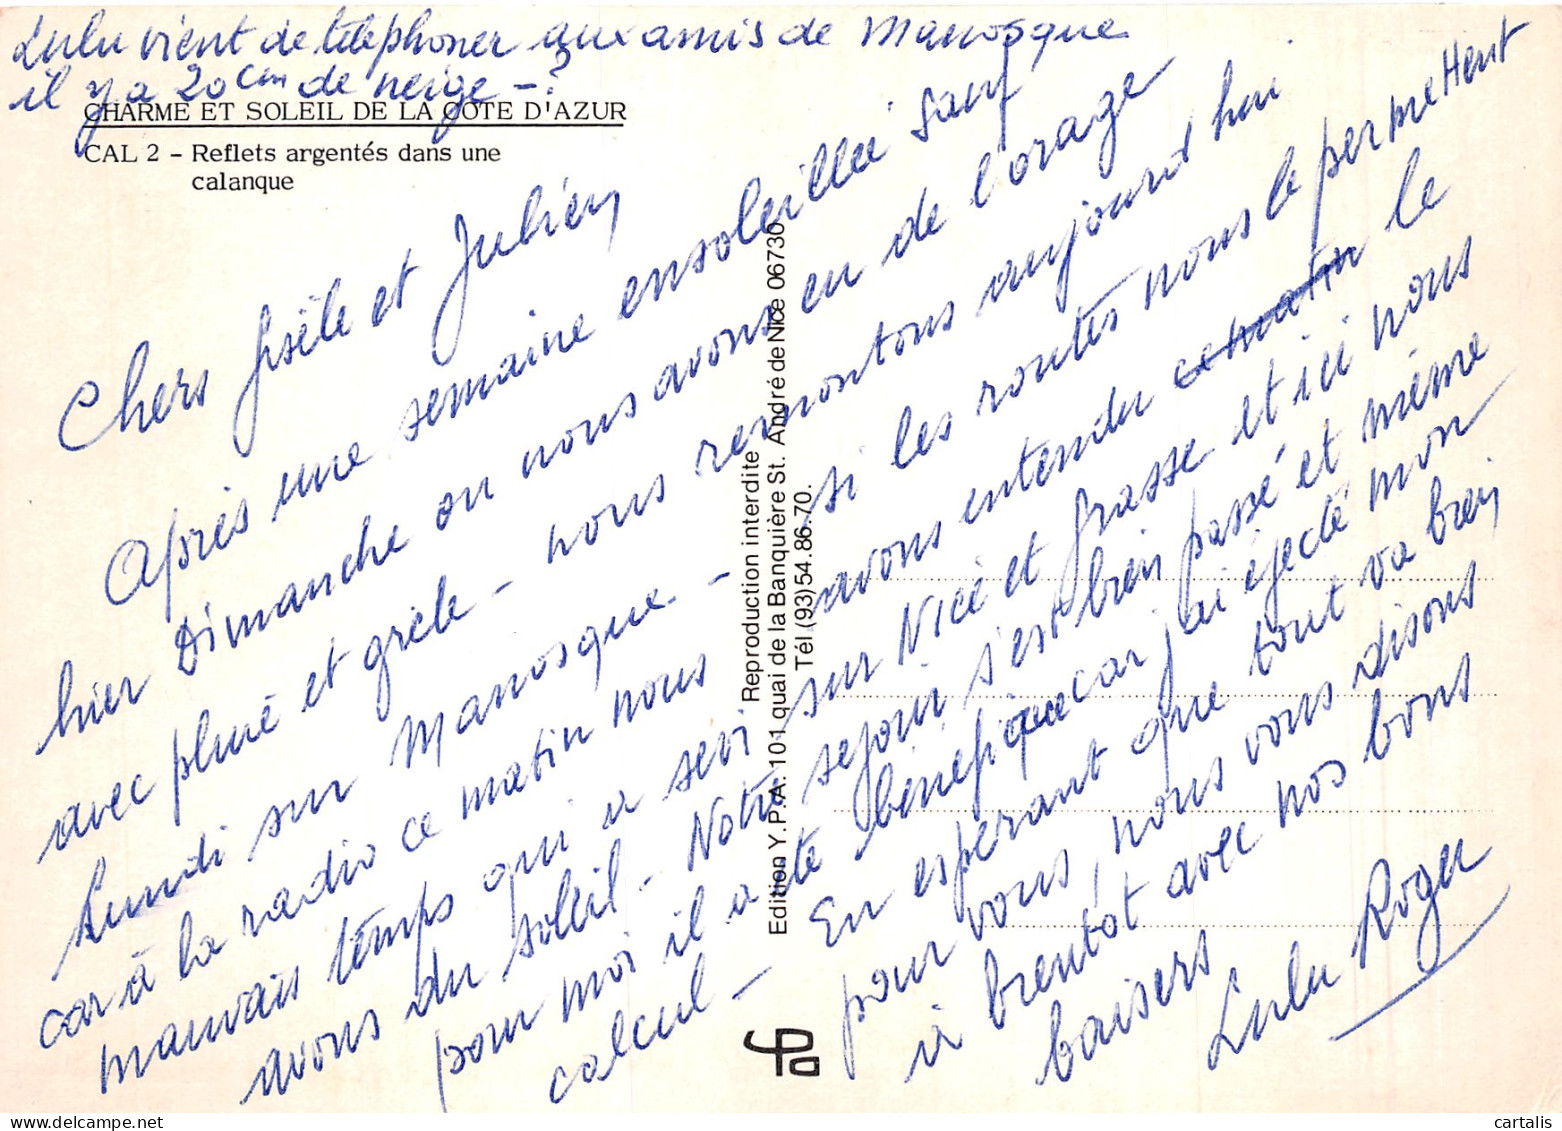 Lulu vient de téléphoner aux amis de Manosque
il y a 20 cm de neige - ?
CHARME ET SOLEIL DE LA COTE D'AZUR
CAL 2 - Reflets argentés dans une
calanque
Chers Gisèle et Julien
Après une semaine ensoleillée sauf
hier Dimanche ou nous avons eu de l'orage
avec pluie et grèle - nous remontons aujourd'hui
Lundi sur Manosque - si les routes nous le permettent
car à la radio ce matin nous avons entendu le
mauvais temps qui a sevi sur Nice et Grasse et ici nous
avons du soleil - Notre sejour s'est bien passé et même
pour moi il a été bénéfique car j'ai éjecté mon
calcul - En espérant que tout va bien
pour vous, nous vous disons
à bientôt avec nos bons
baisers
Lulu Roger
Reproduction interdite
Edition Y.P.A. 101, quai de la Banquière St. André de Nice 06730
Tél (93)54.86.70.
cartalis.com